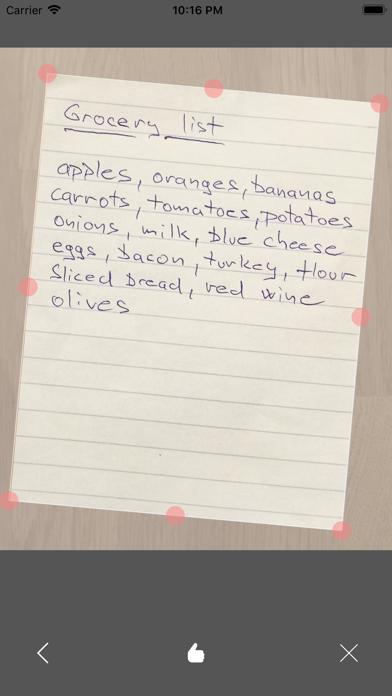 Carrier 10:16 PM
Grocery list
apples, oranges, bananas
carrots, tomatoes, potatoes
onions, milk, blue cheese
eggs, bacon, turkey, flour
sliced bread, red wine
olives